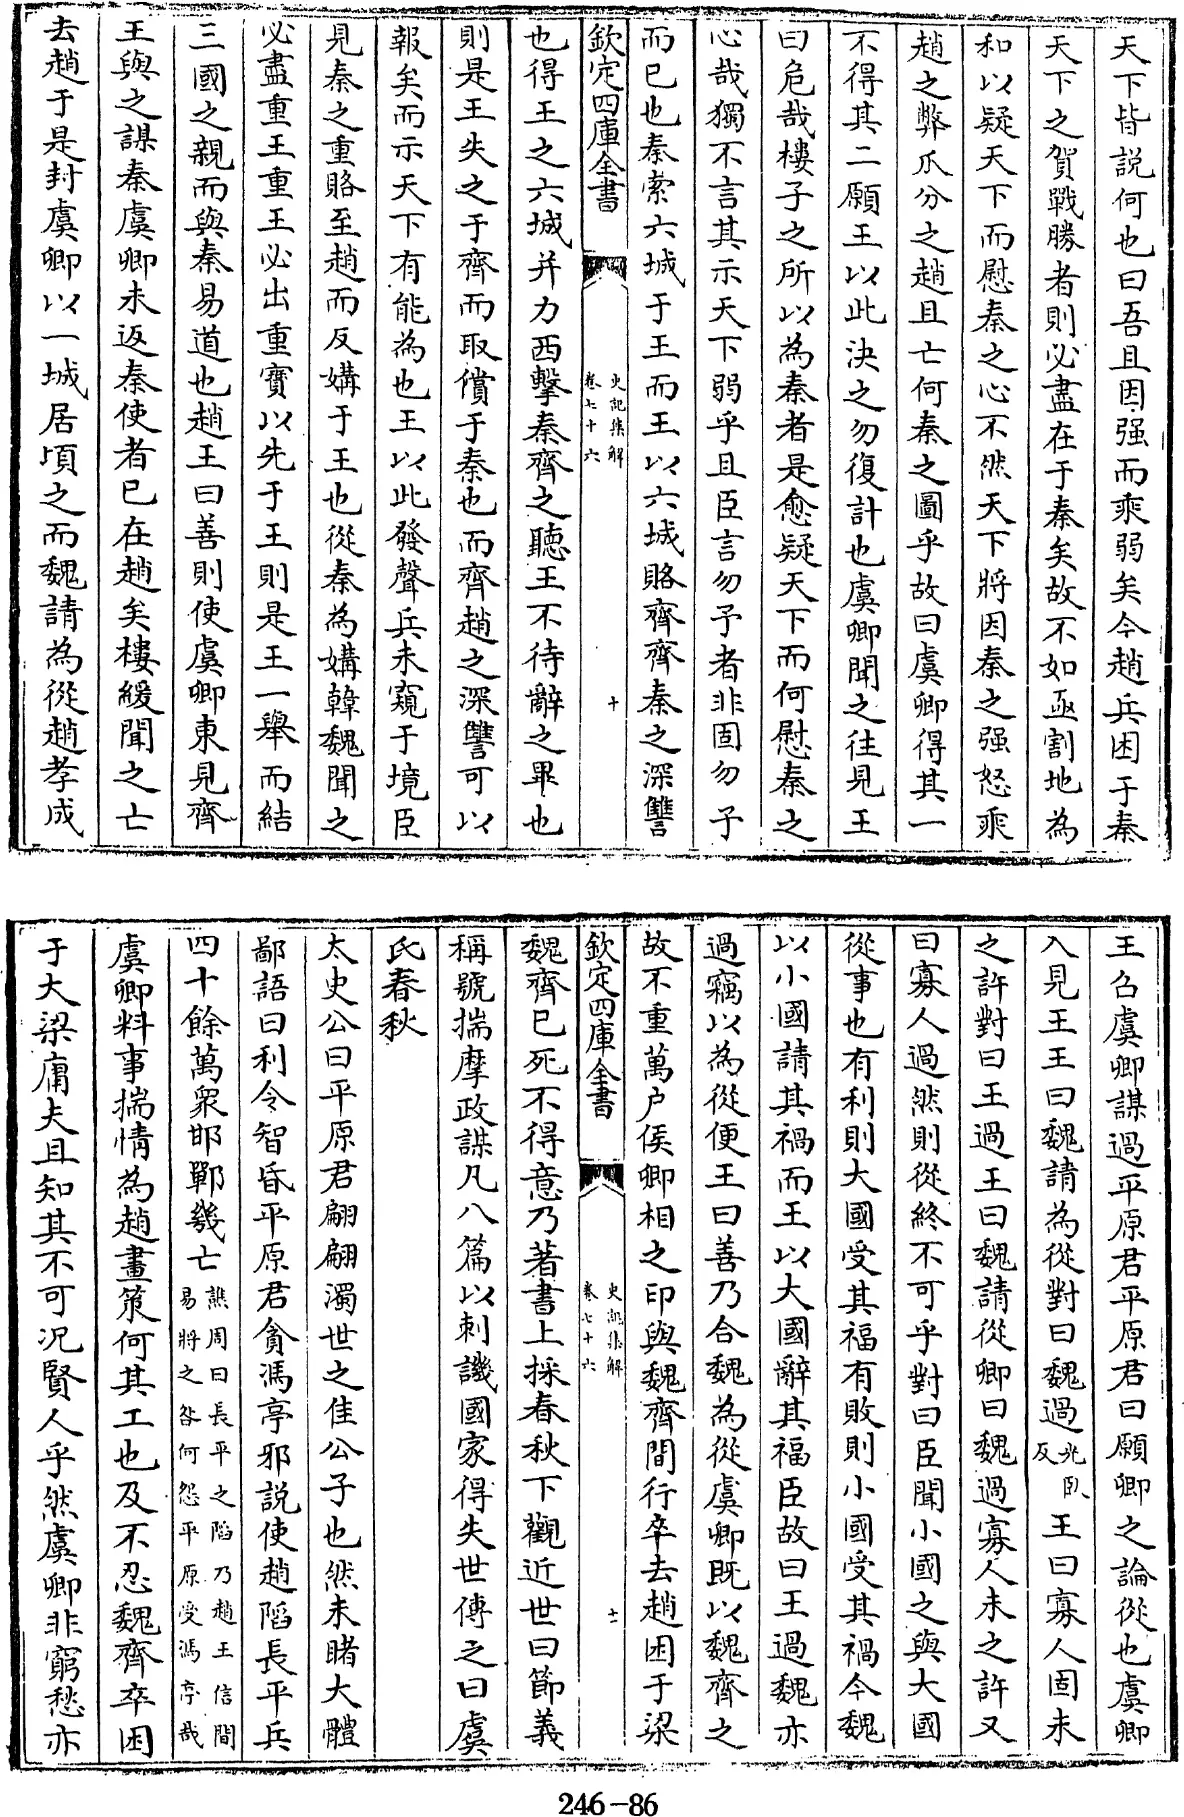 天下皆説何也曰吾且因强而乘弱矣今趙兵困于秦
天下之賀戰勝者則必盡在于秦矣故不如亟割地為
和以疑天下而慰秦之心不然天下將因秦之强怒乘
趙之弊瓜分之趙且亡何秦之圖乎故曰虞卿得其一
不得其二願王以此決之勿復計也虞卿聞之往見王
曰危哉樓子之所以為秦者是愈疑天下而何慰秦之
心哉獨不言其示天下弱乎且臣言勿予者非固勿予
而已也秦索六城于王而王以六城賂齊齊秦之深讐
欽定四庫全書
史記集解
卷七十六
十
也得王之六城并力西擊秦齊之聽王不待辭之畢也
則是王失之于齊而取償于秦也而齊趙之深讐可以
報矣而示天下有能為也王以此發聲兵未窺于境臣
見秦之重賂至趙而反媾于王也從秦為媾韓魏聞之
必盡重王重王必出重寶以先于王則是王一舉而結
三國之親而與秦易道也趙王曰善則使虞卿東見齊
王與之謀秦虞卿未返秦使者已在趙矣樓緩聞之亡
去趙于是封虞卿以一城居頃之而魏請為從趙孝成
王召虞卿謀過平原君平原君曰願卿之論從也虞卿
入見王王曰魏請為從對曰魏過光臥反王曰寡人固未
之許對曰王過王曰魏請從卿曰魏過寡人未之許又
曰寡人過然則從終不可乎對曰臣聞小國之與大國
從事也有利則大國受其福有敗則小國受其禍今魏
以小國請其禍而王以大國辭其福臣故曰王過魏亦
過竊以為從便王曰善乃合魏為從虞卿既以魏齊之
故不重萬户侯卿相之印與魏齊間行卒去趙困于梁
欽定四庫全書
史記集解
卷七十六
十一
魏齊已死不得意乃著書上採春秋下觀近世曰節義
稱號揣摩政謀凡八篇以刺譏國家得失世傳之曰虞
氏春秋
太史公曰平原君翩翩濁世之佳公子也然未睹大體
鄙語曰利令智昏平原君貪馮亭邪説使趙陷長平兵
四十餘萬衆邯鄲幾亡譙周曰長平之陷乃趙王信間易將之咎何怨平原受馮亭哉
虞卿料事揣情為趙畫策何其工也及不忍魏齊卒困
于大梁庸夫且知其不可况賢人乎然虞卿非窮愁亦
246-86